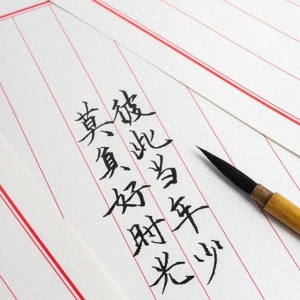 彼此当年少
莫负好时光